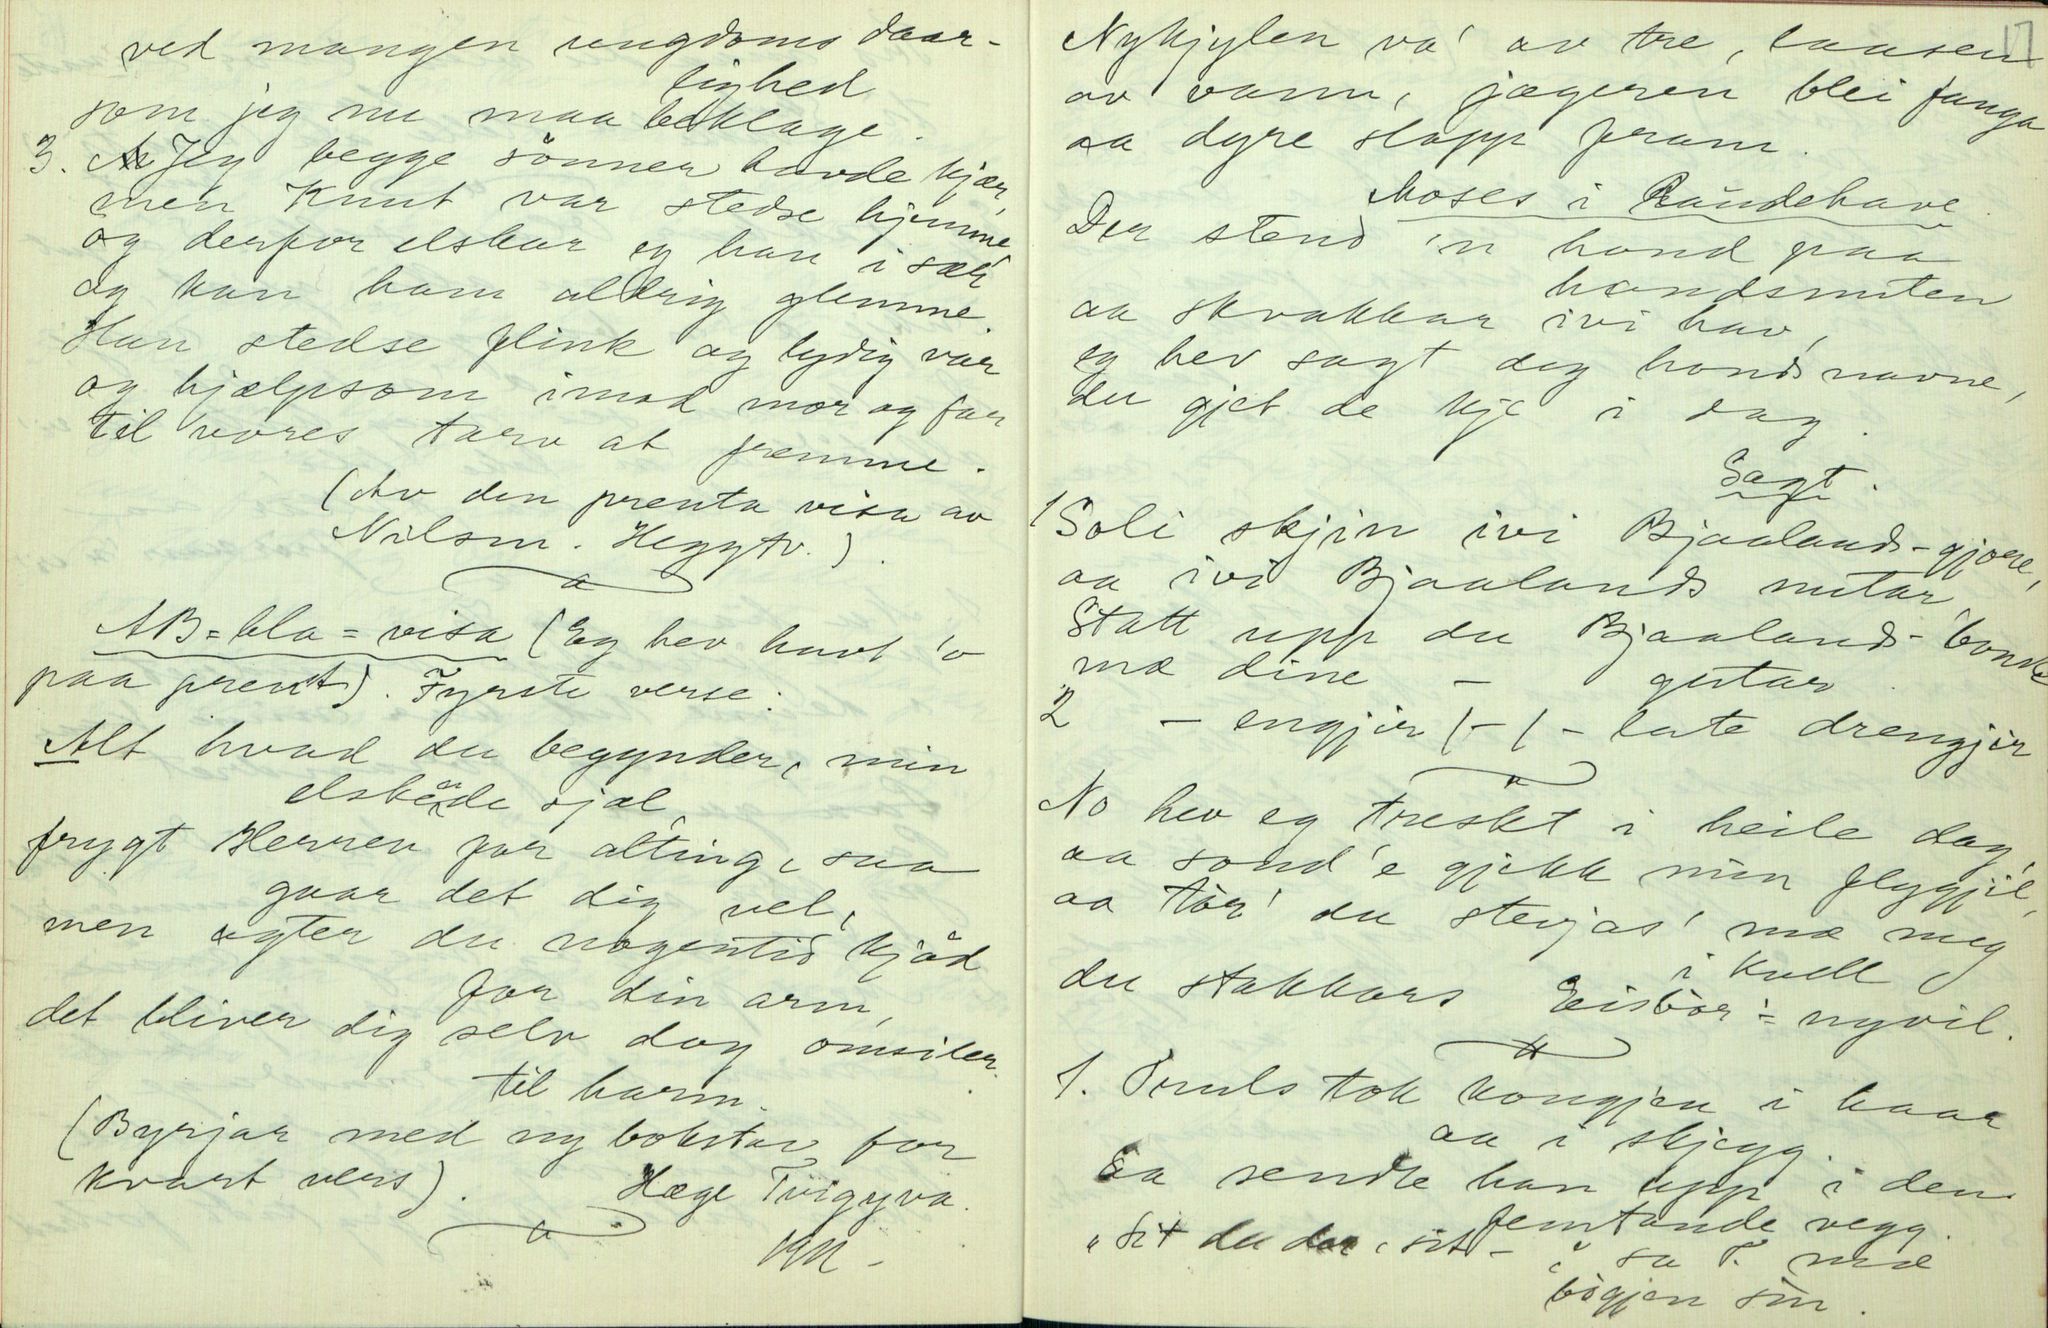 ved mangen ungdoms daar-
lighed
som jeg nu maa beklage.
3. Jeg begge sönner havde kjær,
men Knut var stedse hjemme
og derfor elskar eg han i sær
og kan ham aldrig glemme.
Han stedse flink og lydig var
og hjælpsom imod mor og far
til vores tarv at fremme.
(Av den prenta visa av
Nilsm. Heggtv.)
AB=bla=visa (Eg hev havt 'o
paa prent). Fyrste verse:
Alt hvad du begynder, min
elskede sjæl,
frygt Herren for alting, saa
gaar det dig vel,
men agter du nogentid kjöd
for din arm,
det bliver dig selv dog omsider
til harm.
(Byrjar med ny bokstav for
kvart vers).
Hæge Tvigyva.
Nykjylen va' av tre, laasen
av vann, jægeren blei fanga
aa dyre slapp fram.
Moses i Raudehave.
Der stend 'n hond paa
hondsnuten
aa skvakkar ivi hav,
eg hev sagt deg honds navne,
du gjet de kje i dag.
Sagt.
1 Soli skjin ivi Bjaalands-gjore,
aa ivi Bjaalands nutar,
Statt upp du Bjaalands-bonde
mæ dine - gutar.
2 - engjir (-) - late drengjir
No hev eg treskt i heile dag,
aa sond'e gjekk min flygjil,
aa tör' du steijas' mæ meg
i kvell
du stakkars Eisbör=nyvil.
1. Truls tok kongjen i haar
aa i skjegg.
Saa sendte han upp i den
femtande vegg.
"Sit du der, sit -", sa T. mæ
bògjen sin.
17